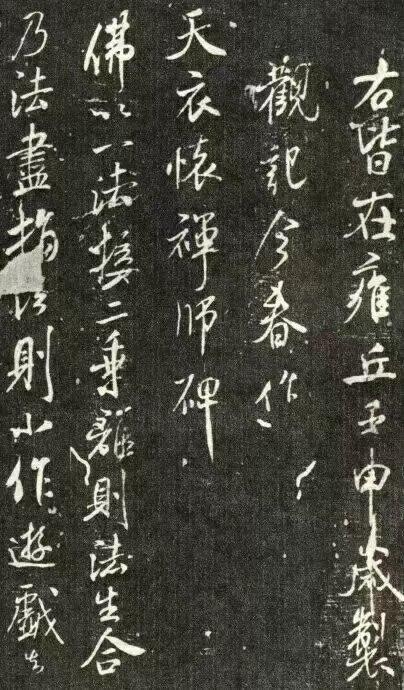 右皆在雍丘壬申歲製
觀記今春作
天衣懷禪師碑
佛以一法接二乘離則法生合
乃法盡則小作遊戲